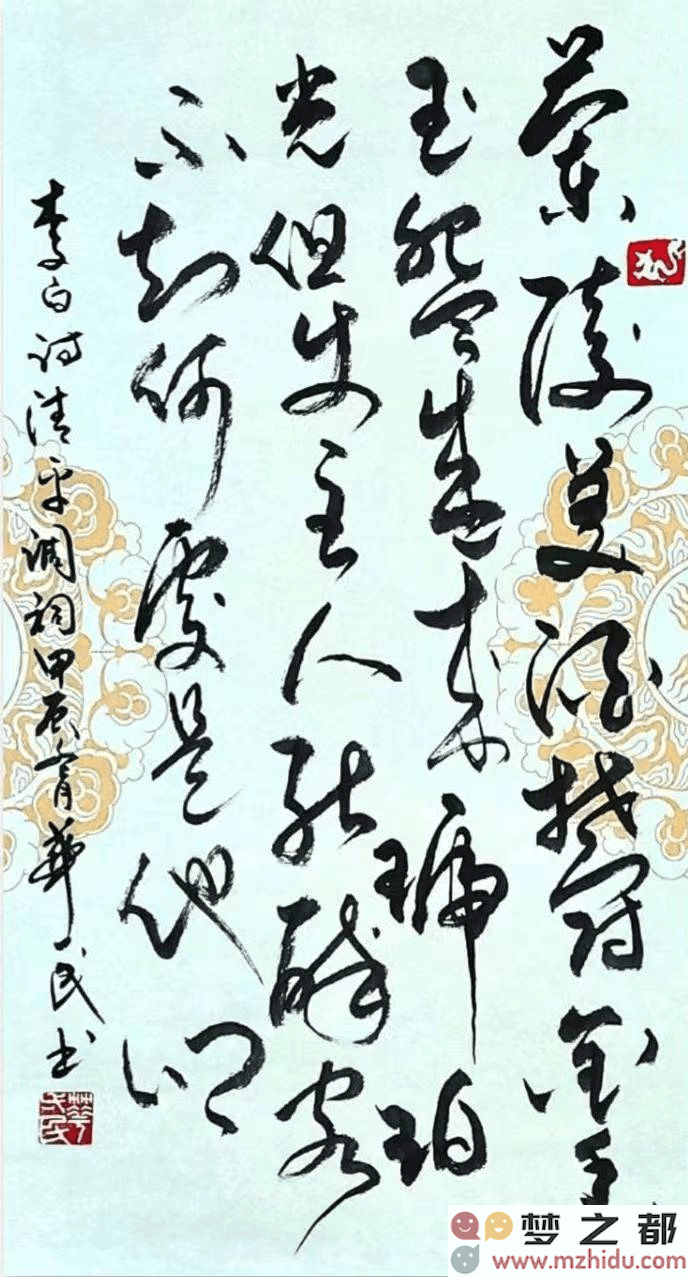 蘭陵美酒鬱金香
玉碗盛来琥珀
光但使主人能醉客
不知何處是他鄉
李白诗清平调词甲辰月華民书
梦之都
www.mzhidu.com